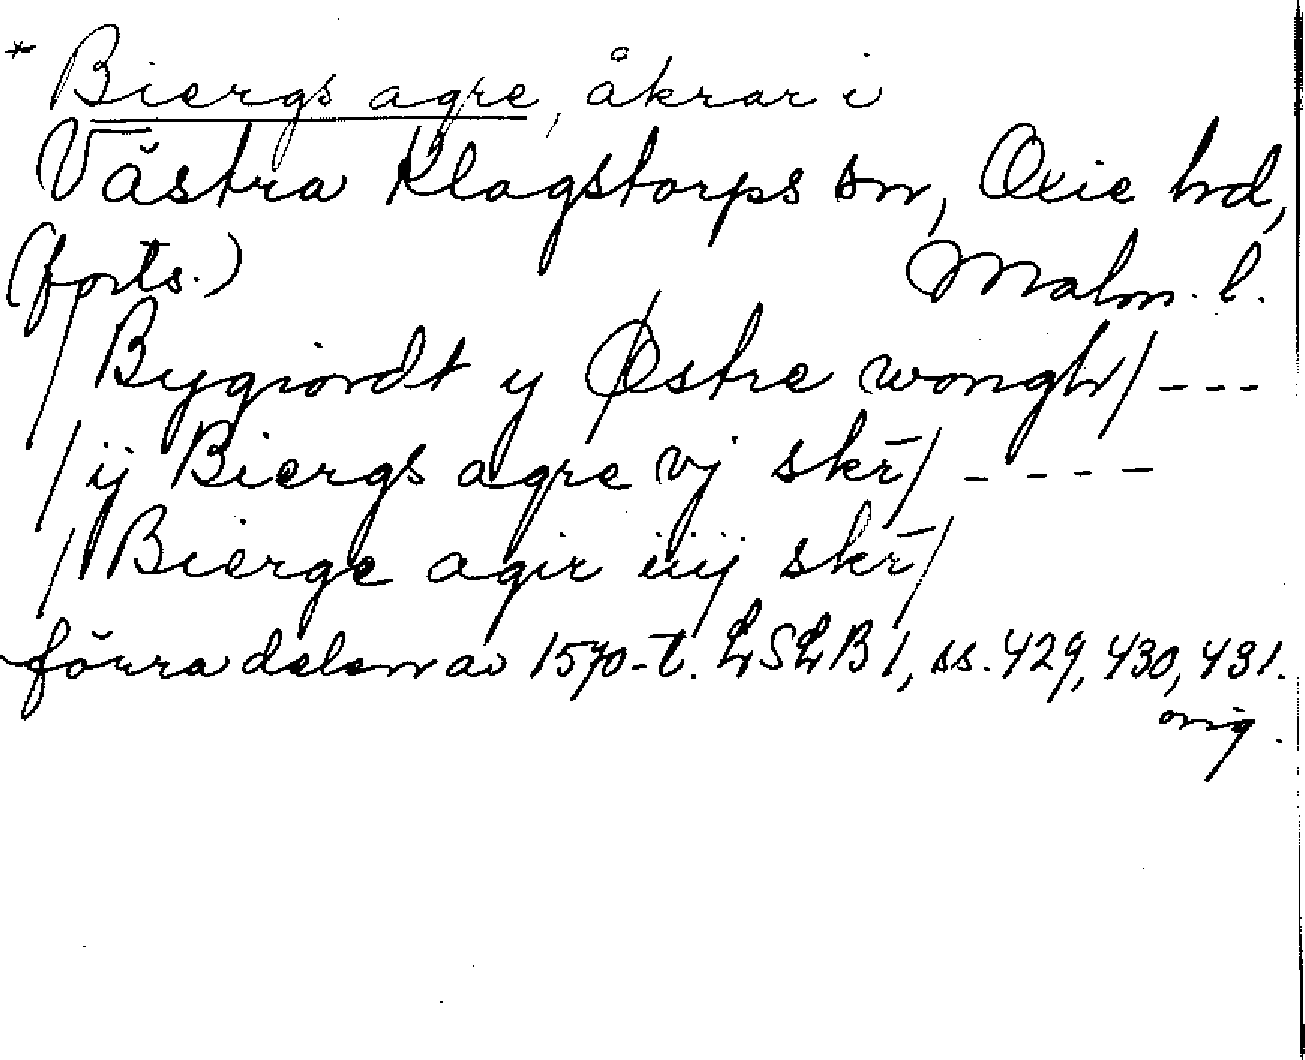 * Biergs agre, åkrar i
Västra Klagstorps sn, Oxie hd,
(forts.) Malm. l.
/Bygiordt y Østre wongh/ ---
/ij Biergs agre vj skr̄/ ----
/Bierge agir iiij skr̄/
förra delen av 1570-t. LSLB 1, ss. 429, 430, 431.
orig.